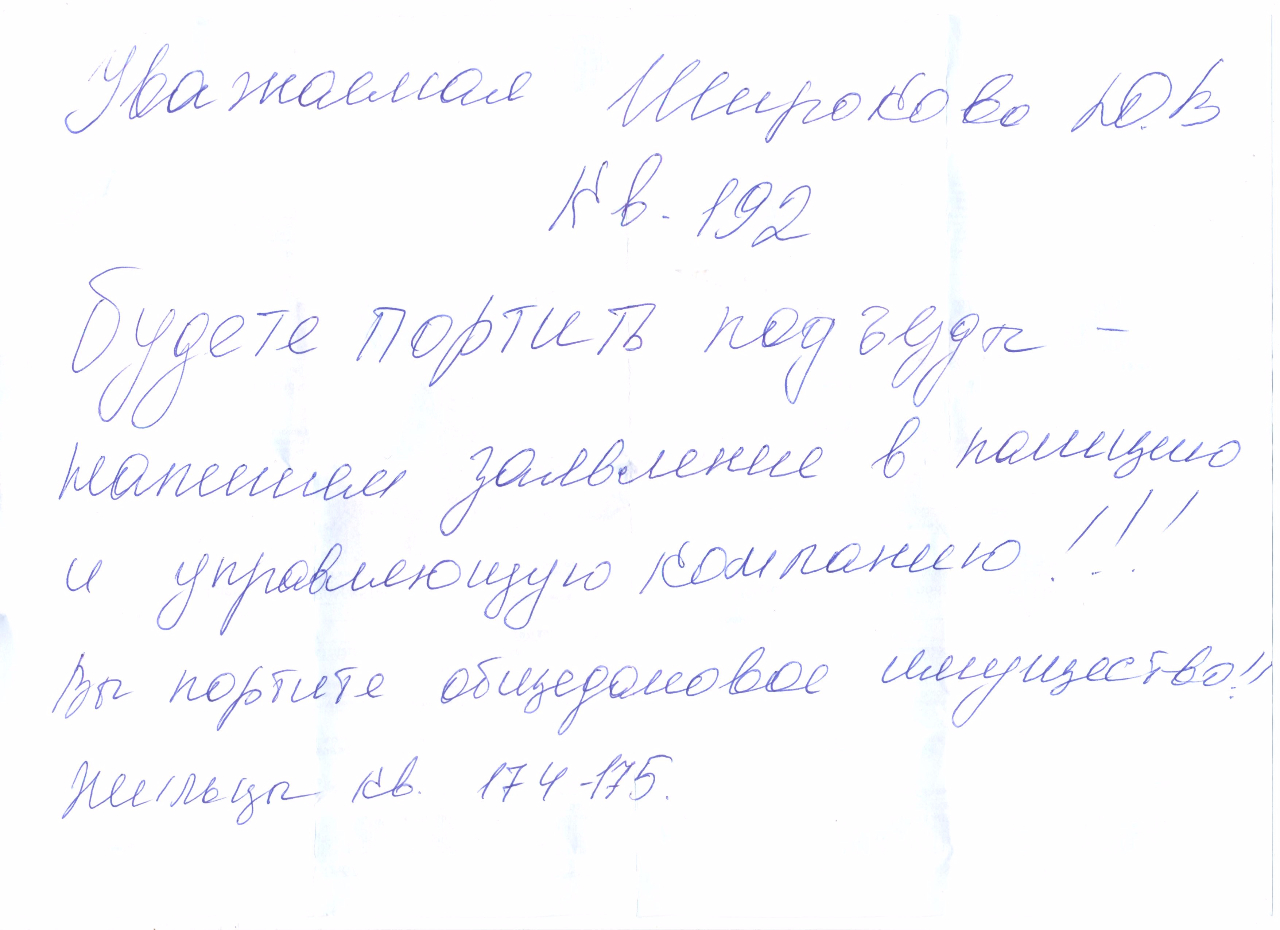 Уважаемая Широкова Ю.В
Кв. 192
будете портить подъезды -
напишем заявление в полицию
и управляющую компанию!!!
Вы портите общедомовое имущество!!
Жильцы кв. 174-175.